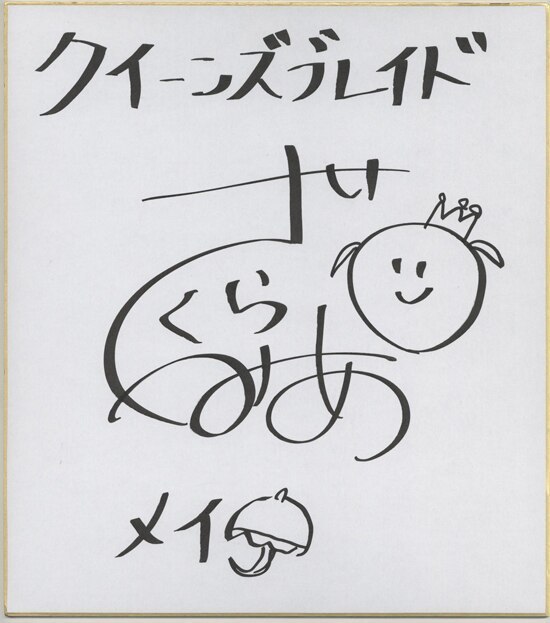 クイーンズブレイド
さ
くら
みあ
メイ